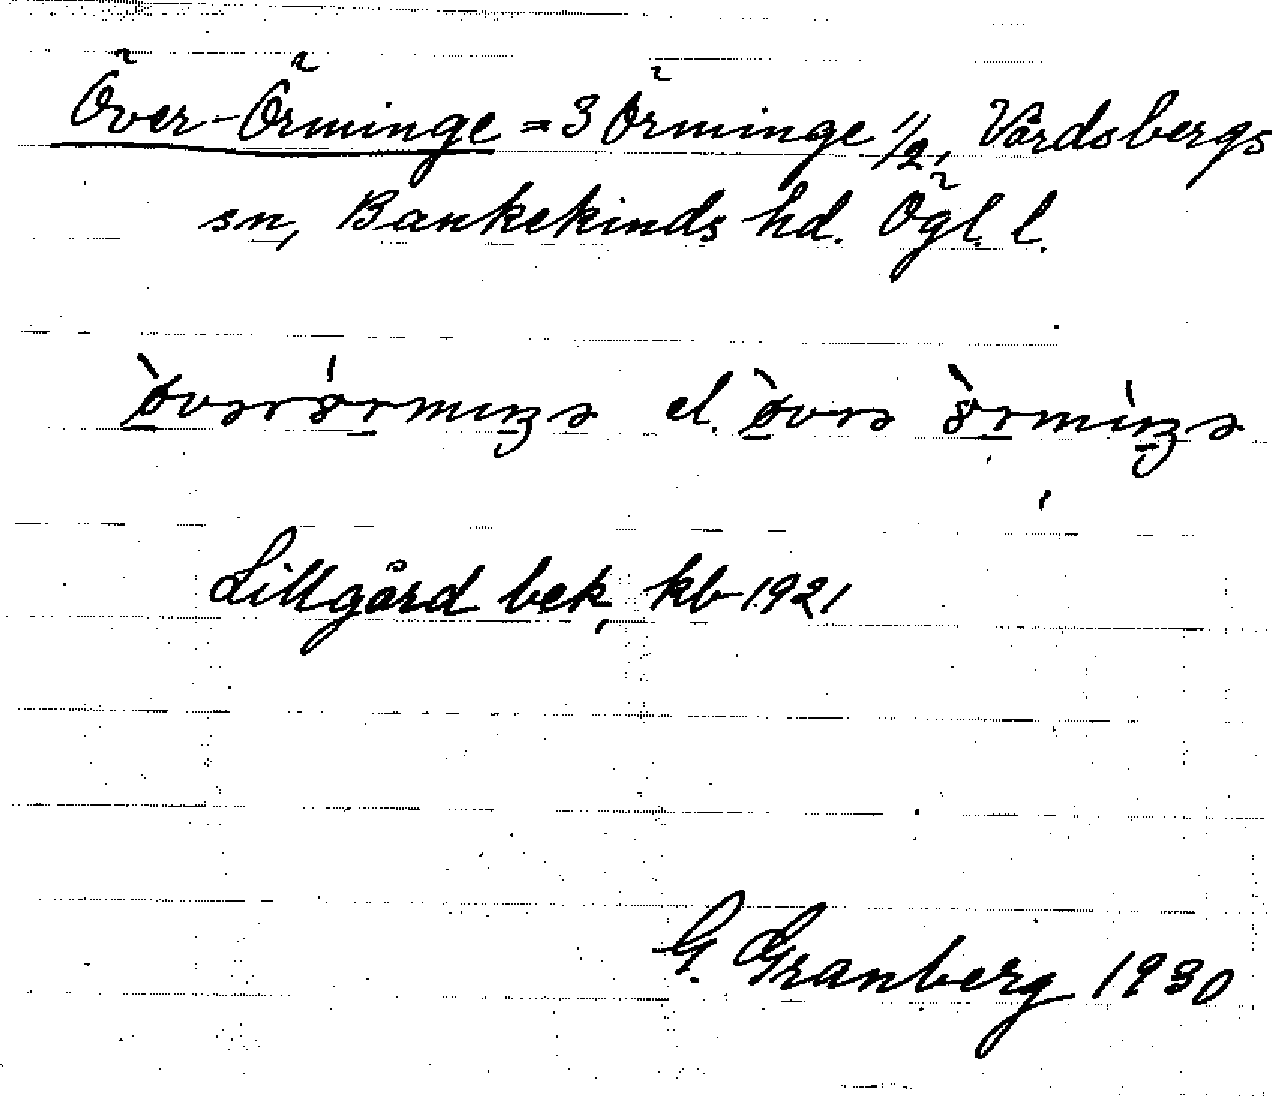 Över-Örminge = 3 Örminge 1/2, Vårdsbergs
sn, Bankekinds hd. Ögl. l.
el.
Lillgård bek, kb 1921
G. Granberg 1930